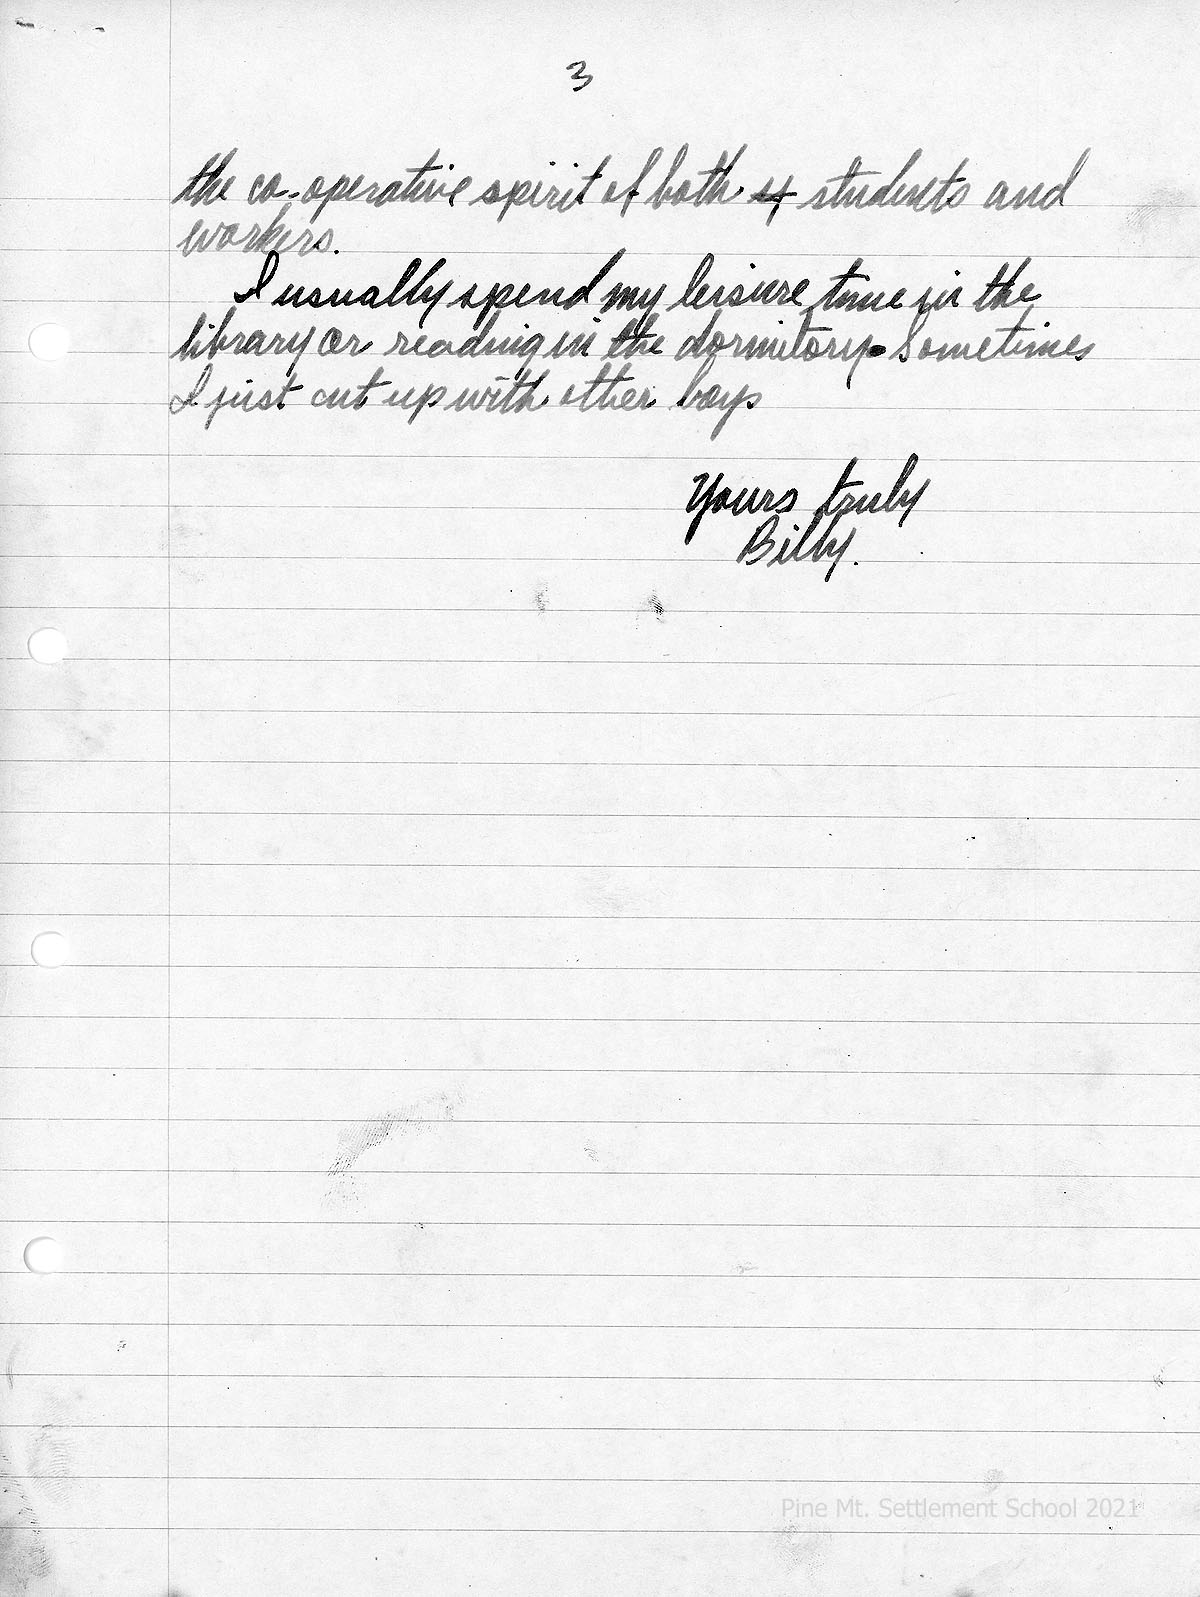 3
the co-operative spirit of both students and
workers.
I usually spend my leisure time in the
library or reading in the dormitory. Sometimes
I just cut up with other boys
Yours truly
Billy.
Pine Mt. Settlement School 2021